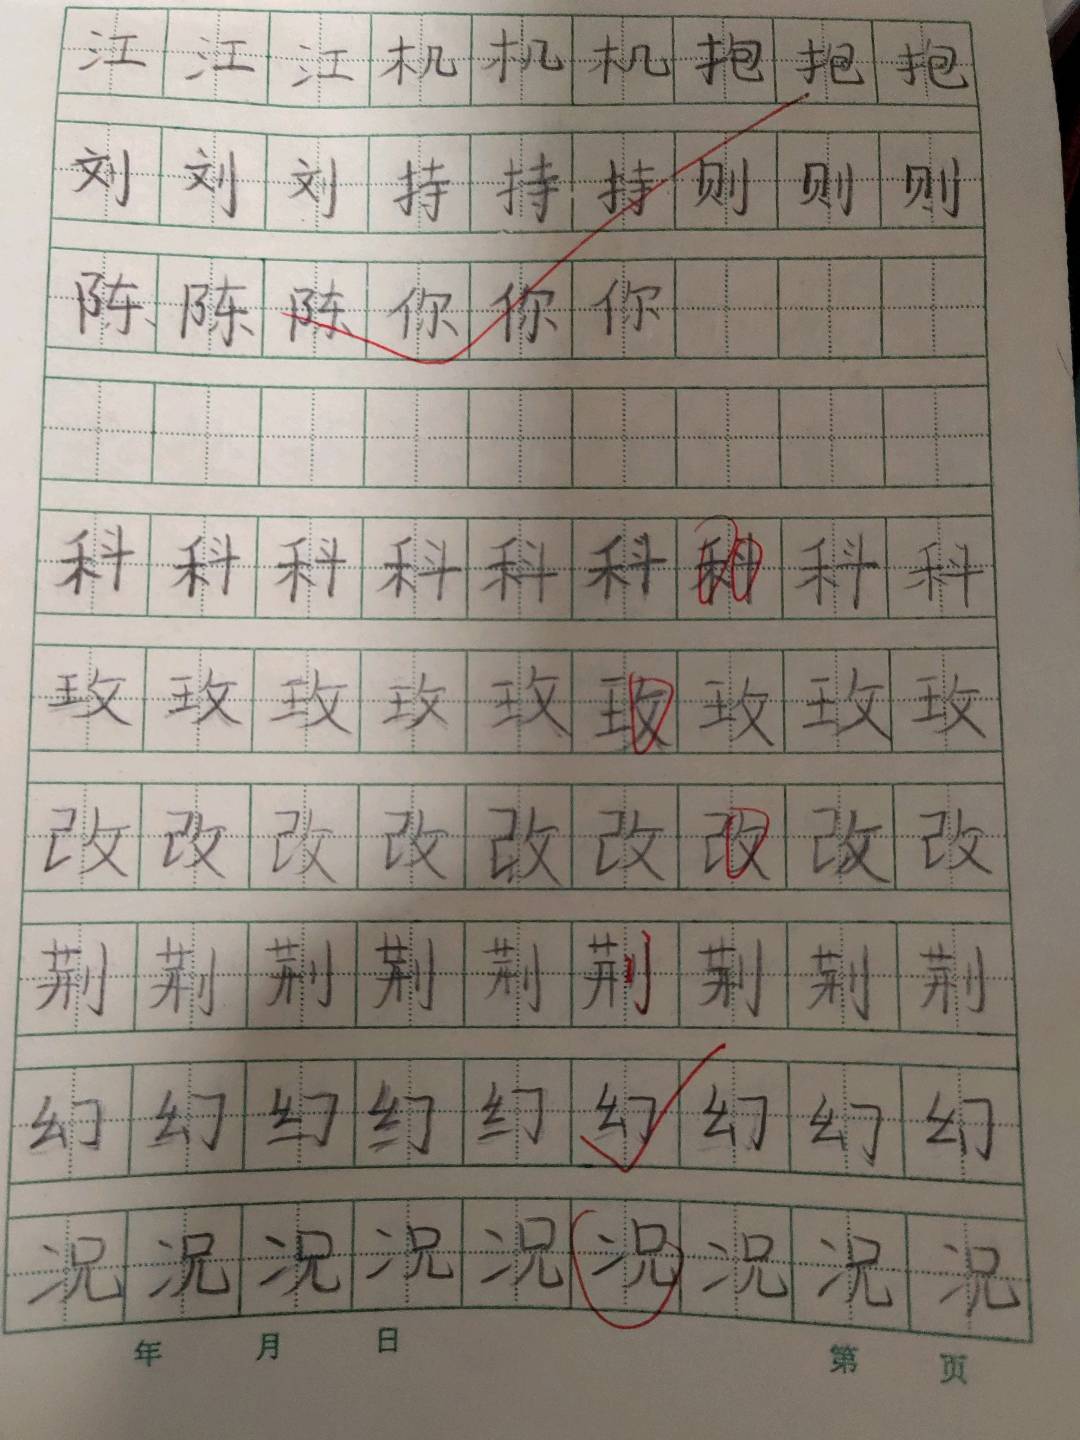 江江江机机机抱抱抱
刘刘刘持持持则则则
陈陈陈你你你
科科科科科科科科科
玫玫玫玫玫玫玫玫玫
改改改改改改改改改
荆荆荆荆荆荆荆荆荆
幻幻幻幻幻幻幻幻幻
况况况况况况况况况
年 月 日 第 页